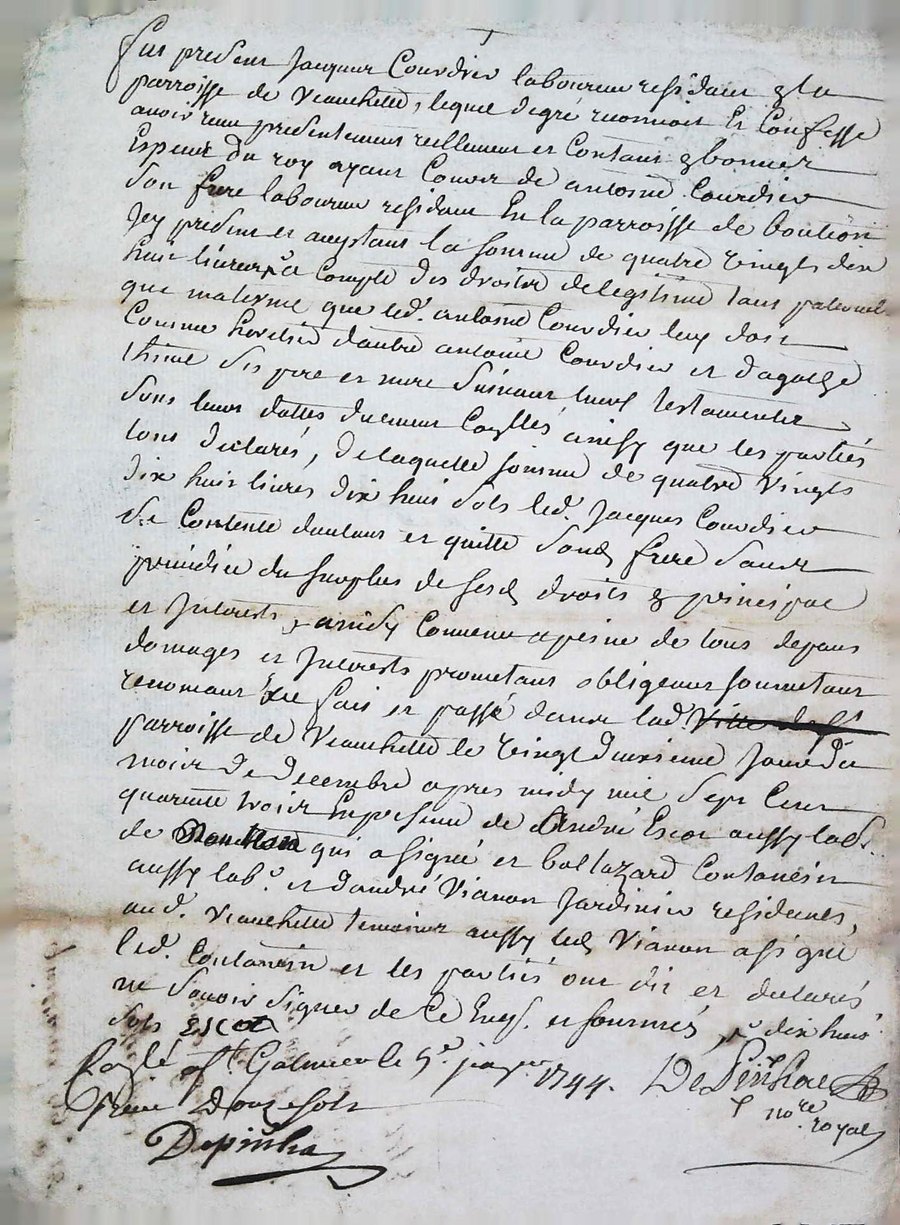 Fut present Jacques Courdier laboureur residant en la
parroisse de Veauchette, lequel degré reconnoit et Confesse
avoir reçu presentement reellement et Contant en bonnes
Especes du roy ayant Cours de antoine Courdier
son frere laboureur residant En la parroisse de bouthéon
Icy present et aceptant la somme de quatre vingts dix
huit livres a Compte des droits de legitime tant paternel
que maternel que led. antoine Courdier luy doit
Comme heritier dautre antoine Courdier et dagathe
thiné ses pere et mere suivant leurs testaments
sous leurs dattes duement Conllés ainsy que les partiés
lont declarés, de laquelle somme de quatre vingts
dix huit livres dix huit sols led. Jacques Courdier
se Contente dautant et quitte sond. frere sans
préiudice du surplus de sesd. droits en principal
et Interests, ainsy Convenu a peine de tous depans
domages et Interests prometant obligeant soumetant
renonceant &c fait et passé dans lad. Ville de St
parroisse de Veauchette le vingt deuxieme Jour du
mois de decembre apres midy mil sept Cent
quarante trois En presence de André Escot aussy lab.
de qui a signé et baltazard Contanein
aussy lab.r et dandré Vianon Jardinier residents
aud. Veauchette temoins aussy led. Vianon a signé
led. Contanein et les partiés ont dit et declarés
ne savoir signer de Ce Enq. et sommés, dix huit
sols Escot
Conllé a St Galmier le 5e janvier 1744.
Reçu Douze sols
Depinhac
De Pinhac
nore royal